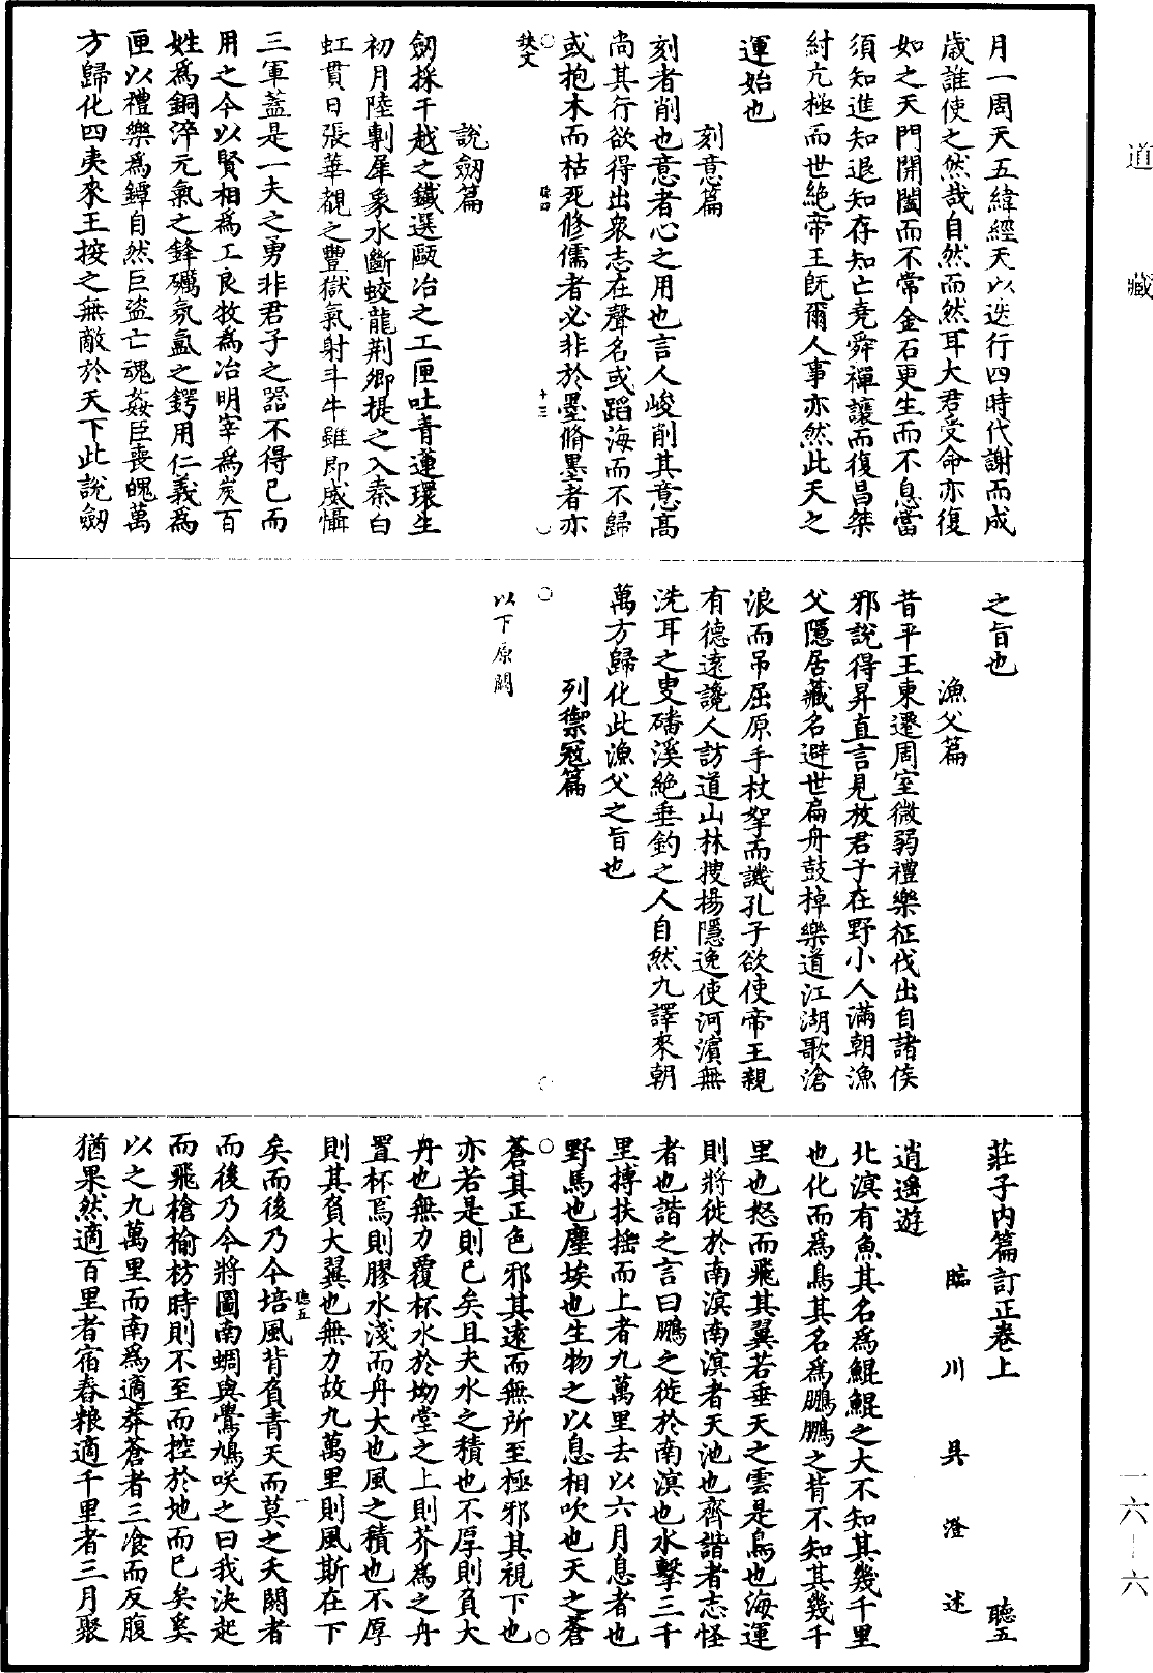 道藏
月一周天五緯經天以迭行四時代謝而成
歲誰使之然哉自然而然耳大君受命亦復
如之天門開闔而不常金石更生而不息當
須知進知退知存知亡堯舜禪讓而復昌桀
紂亢極而世絕帝王旣爾人事亦然此天之
運始也
刻意篇
刻者削也意者心之用也言人峻削其意高
尚其行欲得出衆志在聲名或蹈海而不歸
或抱木而枯死修儒者必非於墨脩墨者亦
十三
說劒篇
劒採干越之鐵選甌冶之工匣吐青蓮環生
初月陸剸犀象水斷蛟龍荆卿提之入秦白
虹貫日張華覩之豐獄氣射斗牛雖即威懾
三軍蓋是一夫之勇非君子之器不得已而
用之今以賢相爲工良牧爲冶明宰爲炭百
姓爲銅淬元氣之鋒礪氛氳之鍔用仁義爲
匣以禮樂爲鐔自然巨盜亡魂姦臣喪魄萬
方歸化四夷來王按之無敵於天下此說劒
之旨也
漁父篇
昔平王東遷周室微弱禮樂征伐出自諸侯
邪說得昇直言見放君子在野小人滿朝漁
父隱居藏名避世扁舟鼓棹樂道江湖歌滄
浪而吊屈原手杖拏而譏孔子欲使帝王親
有德遠讒人訪道山林搜楊隱逸使河濱無
洗耳之叟磻溪絕垂釣之人自然九譯來朝
萬方歸化此漁父之旨也
列禦寇篇
以下原闕
莊子内篇訂正卷上 聽五
臨川吳澄述
逍遙遊
北溟有魚其名爲鯤鯤之大不知其幾千里
也化而爲鳥其名爲鵬鵬之背不知其幾千
里也怒而飛其翼若垂天之雲是鳥也海運
則將徙於南溟南溟者天池也齊諧者志怪
者也諧之言曰鵬之徙於南溟也水擊三千
里搏扶搖而上者九萬里去以六月息者也
野馬也塵埃也生物之以息相吹也天之蒼
蒼其正色邪其遠而無所至極邪其視下也
亦若是則已矣且夫水之積也不厚則負大
舟也無力覆杯水於坳堂之上則芥爲之舟
置杯焉則膠水淺而舟大也風之積也不厚
則其負大翼也無力故九萬里則風斯在下
聽五 一
矣而後乃今培風背負青天而莫之夭閼者
而後乃今將圖南蜩與鷽鳩笑之曰我決起
而飛槍榆枋時則不至而控於地而已矣奚
以之九萬里而南爲適莽蒼者三飡而反腹
猶果然適百里者宿舂粮適千里者三月聚
一六－六